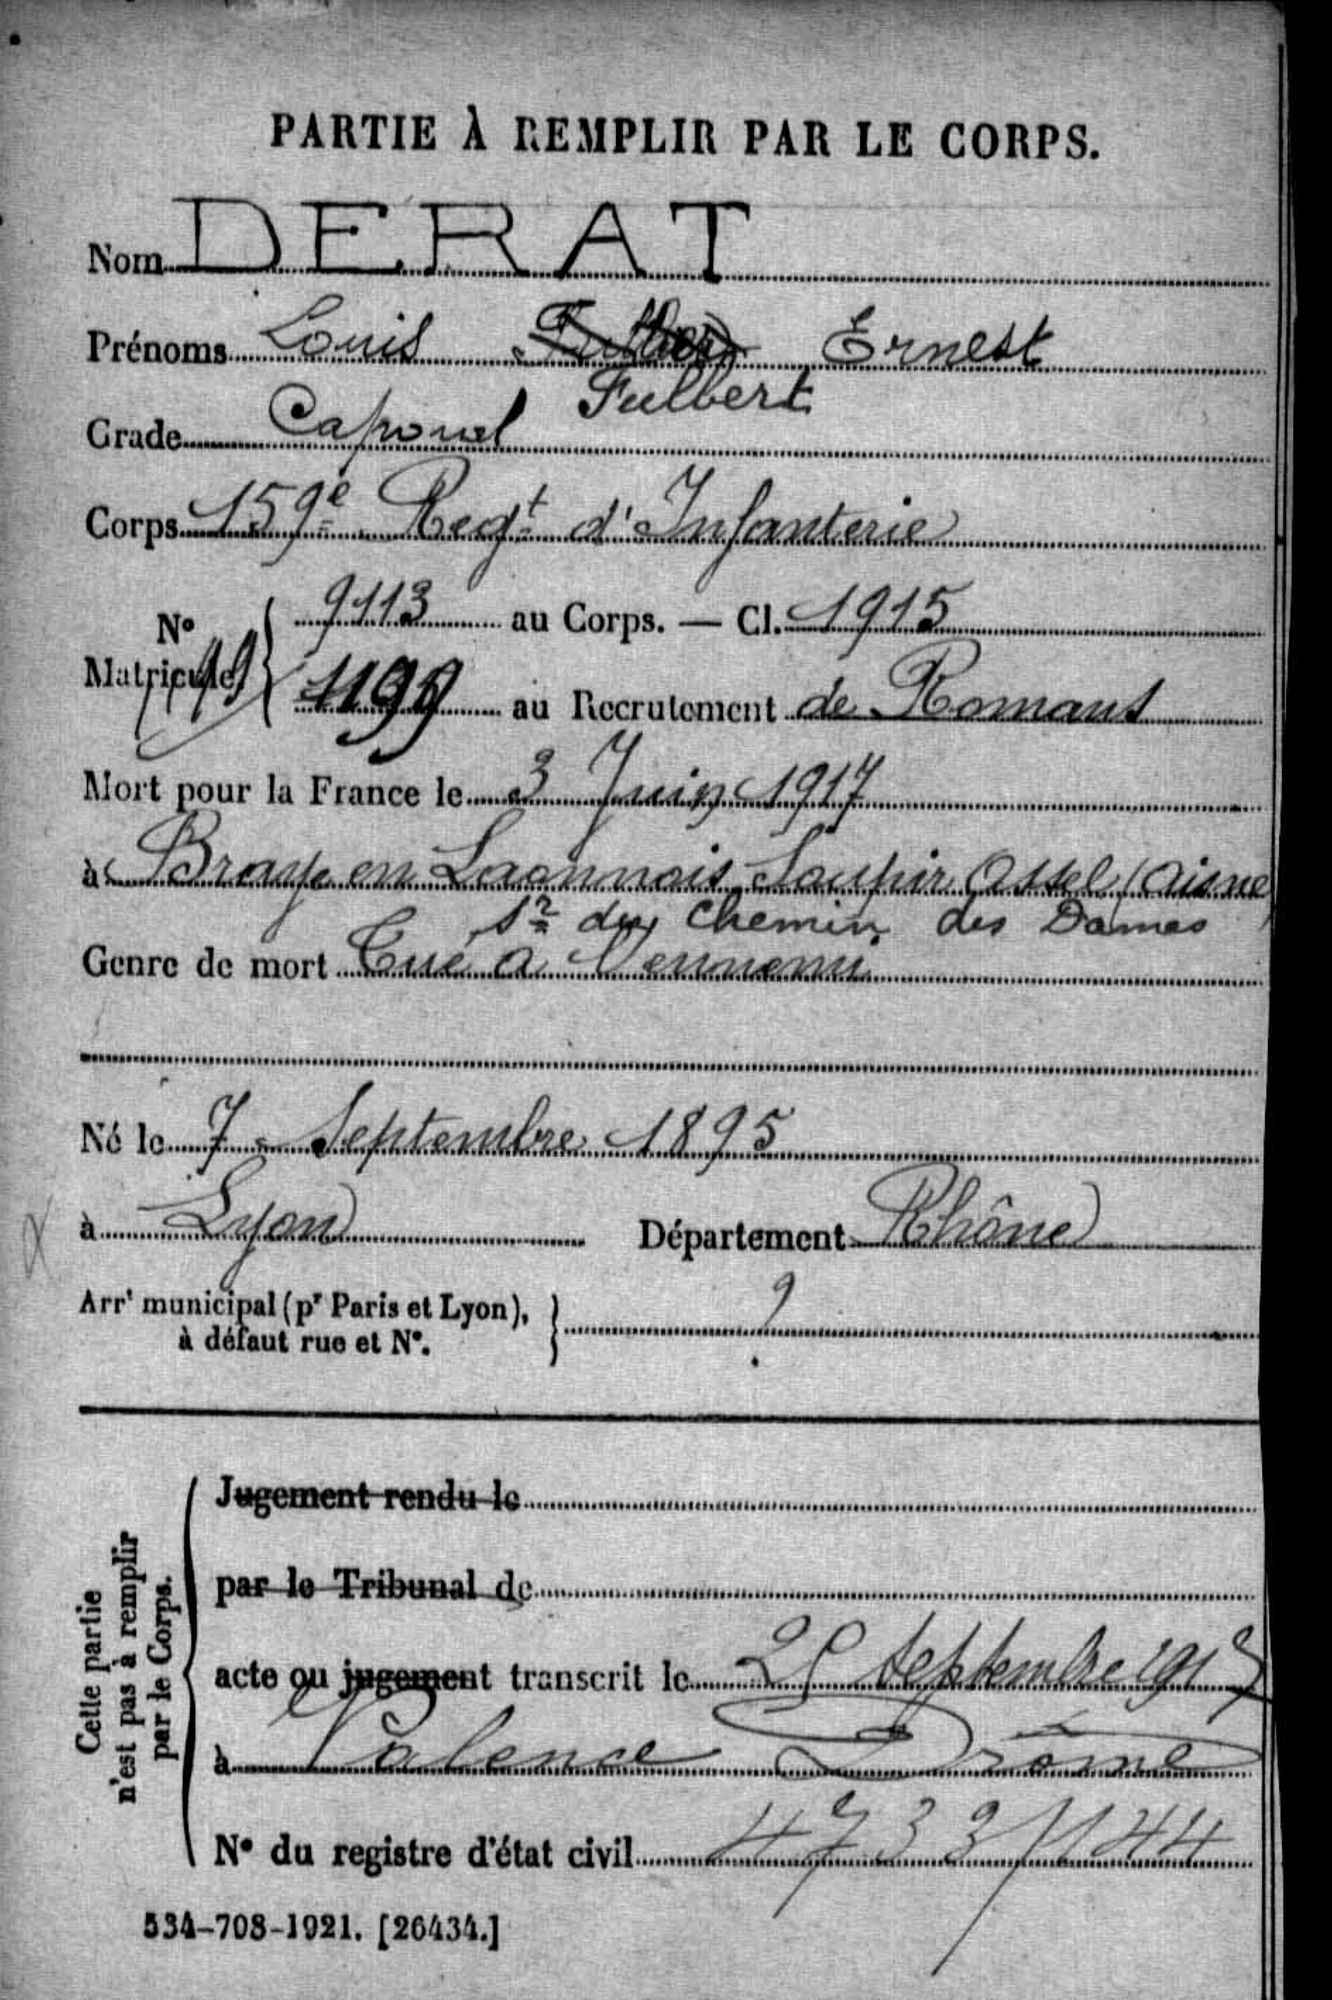 PARTIE À REMPLIR PAR LE CORPS.
Nom DERAT
Prénoms Louis Ernest
Fulbert
Grade Caporal
Corps 159e Regt d'Infanterie
No Matricule 9113 au Corps. — Cl. 1915
1199 au Recrutement de Romans
Mort pour la France le 3 Juin 1917
à Braye en Laonnois Soupir Ostel (Aisne)
Sr du Chemin des Dames
Genre de mort Tué à l'ennemi
Né le 7 Septembre 1895
à Lyon Département Rhône
Arrt municipal (pr Paris et Lyon), à défaut rue et No. ?
Cette partie n'est pas à remplir par le Corps.
Jugement rendu le
par le Tribunal de
acte ou jugement transcrit le Septembre 1917
à Valence Drôme
No du registre d'état civil 4733/144
534-708-1921. [26434.]